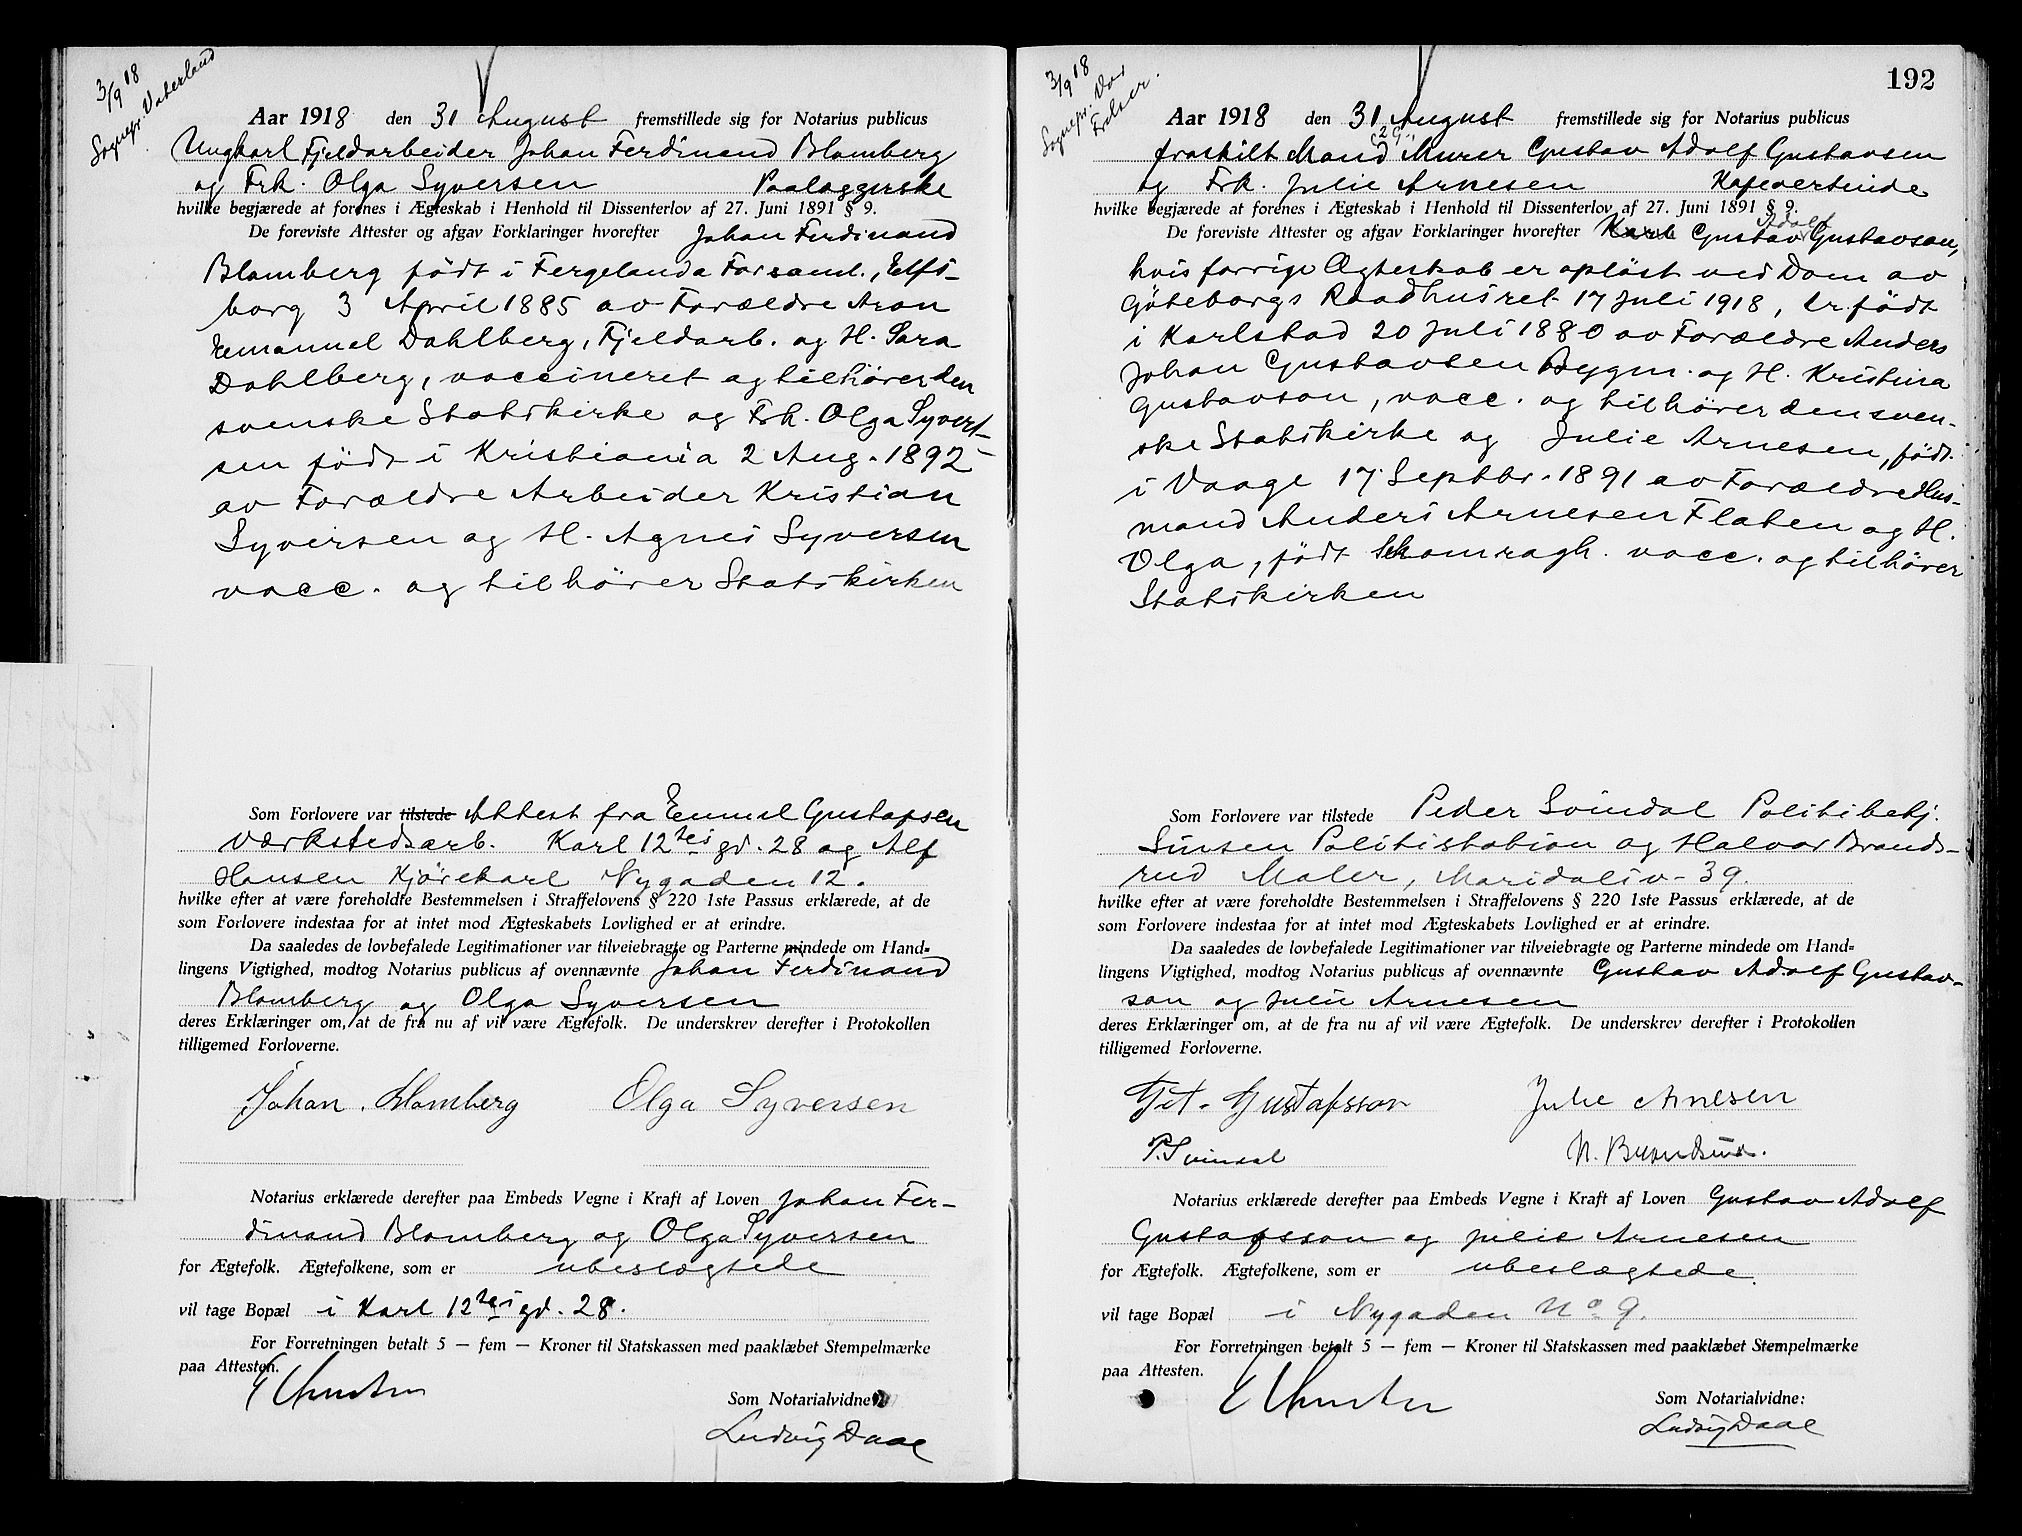 3/9 18
Sognepr. Vaterland
Aar 1918 den 31 August fremstillede sig for Notarius publicus
Ungkarl Fjeldarbeider Johan Ferdinand Blomberg
og Frk. Olga Syversen Paalæggerske
hvilke begjærede at forenes i Ægteskab i Henhold til Dissenterlov af 27. Juni 1891 § 9.
De foreviste Attester og afgav Forklaringer hvorefter Johan Ferdinand
Blomberg född i Fergelanda Forsaml., Elfs-
borg 3 April 1885 av Forældre Aron
Emanuel Dahlberg, Fjeldarb. og H. Sara
Dahlberg, vaccineret og tilhörer den
svenske Statskirke og Frk. Olga Syvert-
sen född i Kristiania 2 Aug. 1892
av Forældre Arbeider Kristian
Syversen og H. Agnes Syversen
vacc. og tilhörer Statskirken
Som Forlovere var tilstede Attest fra Emmel Gustafsen
Værkstedsarb. Karl 12tes gd. 28 og Alf
Hansen Kjörekarl Nygaden 12.
hvilke efter at være foreholdte Bestemmelsen i Straffelovens § 220 1ste Passus erklærede, at de
som Forlovere indestaa for at intet mod Ægteskabets Lovlighed er at erindre.
Da saaledes de lovbefalede Legitimationer var tilveiebragte og Parterne mindede om Hand-
lingens Vigtighed, modtog Notarius publicus af ovennævnte Johan Ferdinand
Blomberg og Olga Syversen
deres Erklæringer om, at de fra nu af vil være Ægtefolk. De underskrev derefter i Protokollen
tilligemed Forloverne.
Johan. Blomberg Olga Syversen
Notarius erklærede derefter paa Embeds Vegne i Kraft af Loven Johan Fer-
dinand Blomberg og Olga Syversen
for Ægtefolk. Ægtefolkene, som er ubeslægtede
vil tage Bopæl i Karl 12tes gd. 28.
For Forretningen betalt 5 — fem — Kroner til Statskassen med paaklæbet Stempelmærke
paa Attesten.
Som Notarialvidne
Ludvig Daae
192
3/9 18
Sognepr. Vor
Frelser.
Aar 1918 den 31 August fremstillede sig for Notarius publicus
fraskilt Mand Murer Gustav Adolf Gustavsen
og Frk. Julie Arnesen Kafevertinde
hvilke begjærede at forenes i Ægteskab i Henhold til Dissenterlov af 27. Juni 1891 § 9.
De foreviste Attester og afgav Forklaringer hvorefter Karl Gustav Adolf Gustavson,
hvis forrige Ægteskab er oplöst ved Dom av
Göteborgs Raadhusret 17 Juli 1918, er född
i Karlstad 20 Juli 1880 av Forældre Anders
Johan Gustavsen Bygm. og H. Kristina
Gustavson, vacc. og tilhörer den sven-
ske Statskirke og Julie Arnesen, född
i Vaage 17 Septbr. 1891 av Forældre Hus-
mand Anders Arnesen Flaten og H.
Olga, född vacc. og tilhörer
Statskirken
Som Forlovere var tilstede Peder Svindal Politibetj.
Sinsen Politistation og Halvor Brands-
rud Maler, Maridalsv. 39.
hvilke efter at være foreholdte Bestemmelsen i Straffelovens § 220 1ste Passus erklærede, at de
som Forlovere indestaa for at intet mod Ægteskabets Lovlighed er at erindre.
Da saaledes de lovbefalede Legitimationer var tilveiebragte og Parterne mindede om Hand-
lingens Vigtighed, modtog Notarius publicus af ovennævnte Gustav Adolf Gustav-
son og Julie Arnesen
deres Erklæringer om, at de fra nu af vil være Ægtefolk. De underskrev derefter i Protokollen
tilligemed Forloverne.
Gustafsson Julie Arnesen
P. Svindal H. Brandsrud.
Notarius erklærede derefter paa Embeds Vegne i Kraft af Loven Gustav Adolf
Gustafsson og Julie Arnesen
for Ægtefolk. Ægtefolkene, som er ubeslægtede.
vil tage Bopæl i Nygaden No 9.
For Forretningen betalt 5 — fem — Kroner til Statskassen med paaklæbet Stempelmærke
paa Attesten.
Som Notarialvidne:
Ludvig Daae